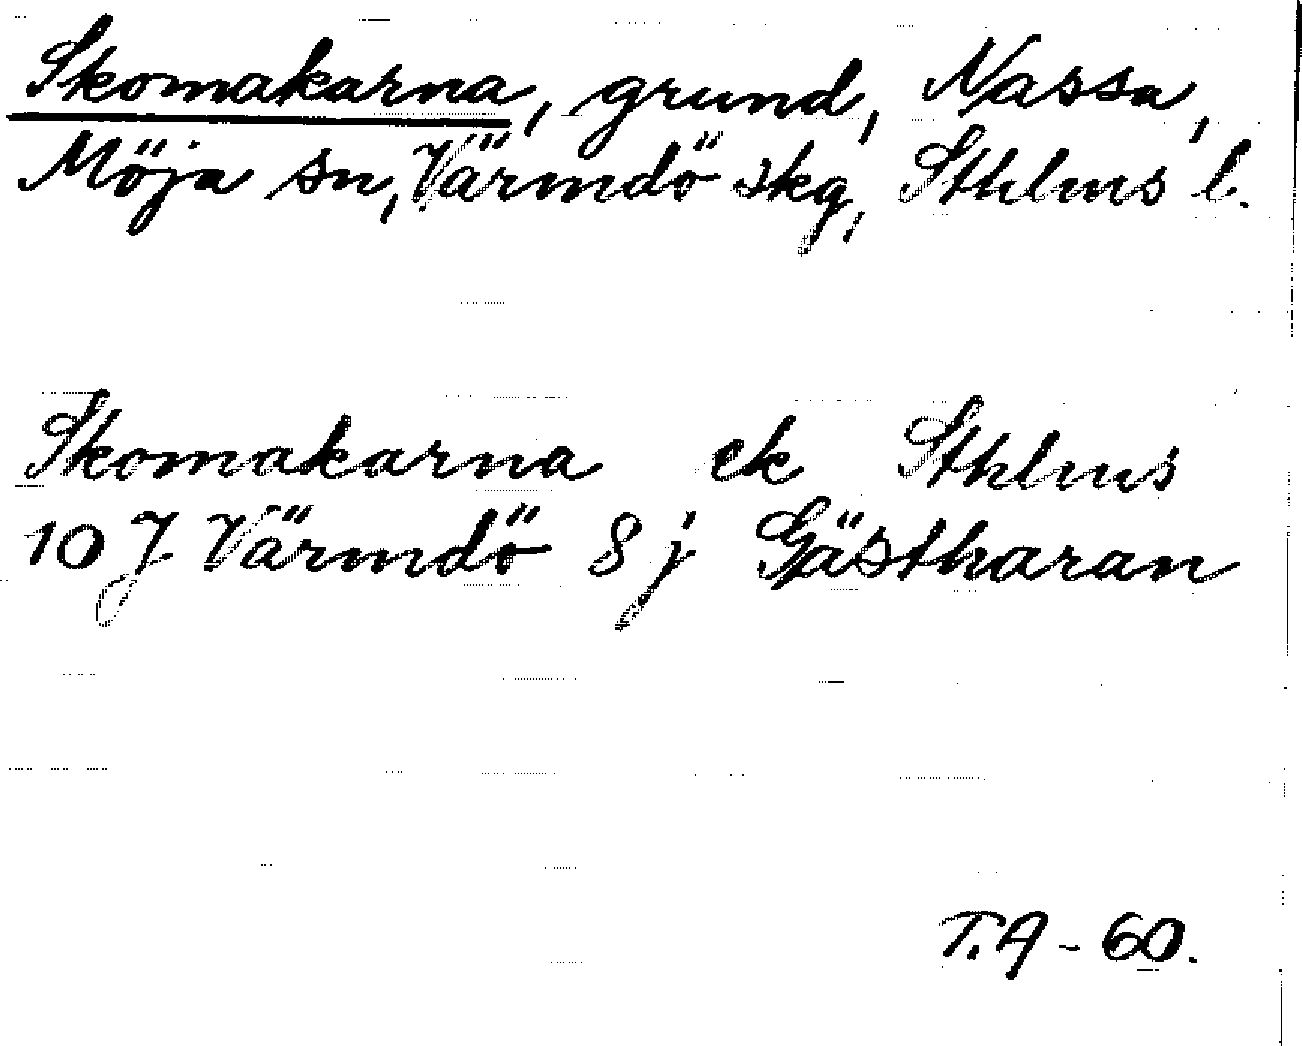 Skomakarna, grund, Nassa,
Möja sn, Värmdö skg, Sthlms l.
Skomakarna ek Sthlms
10 J Värmdö 8 j Gästharan
T.A - 60.